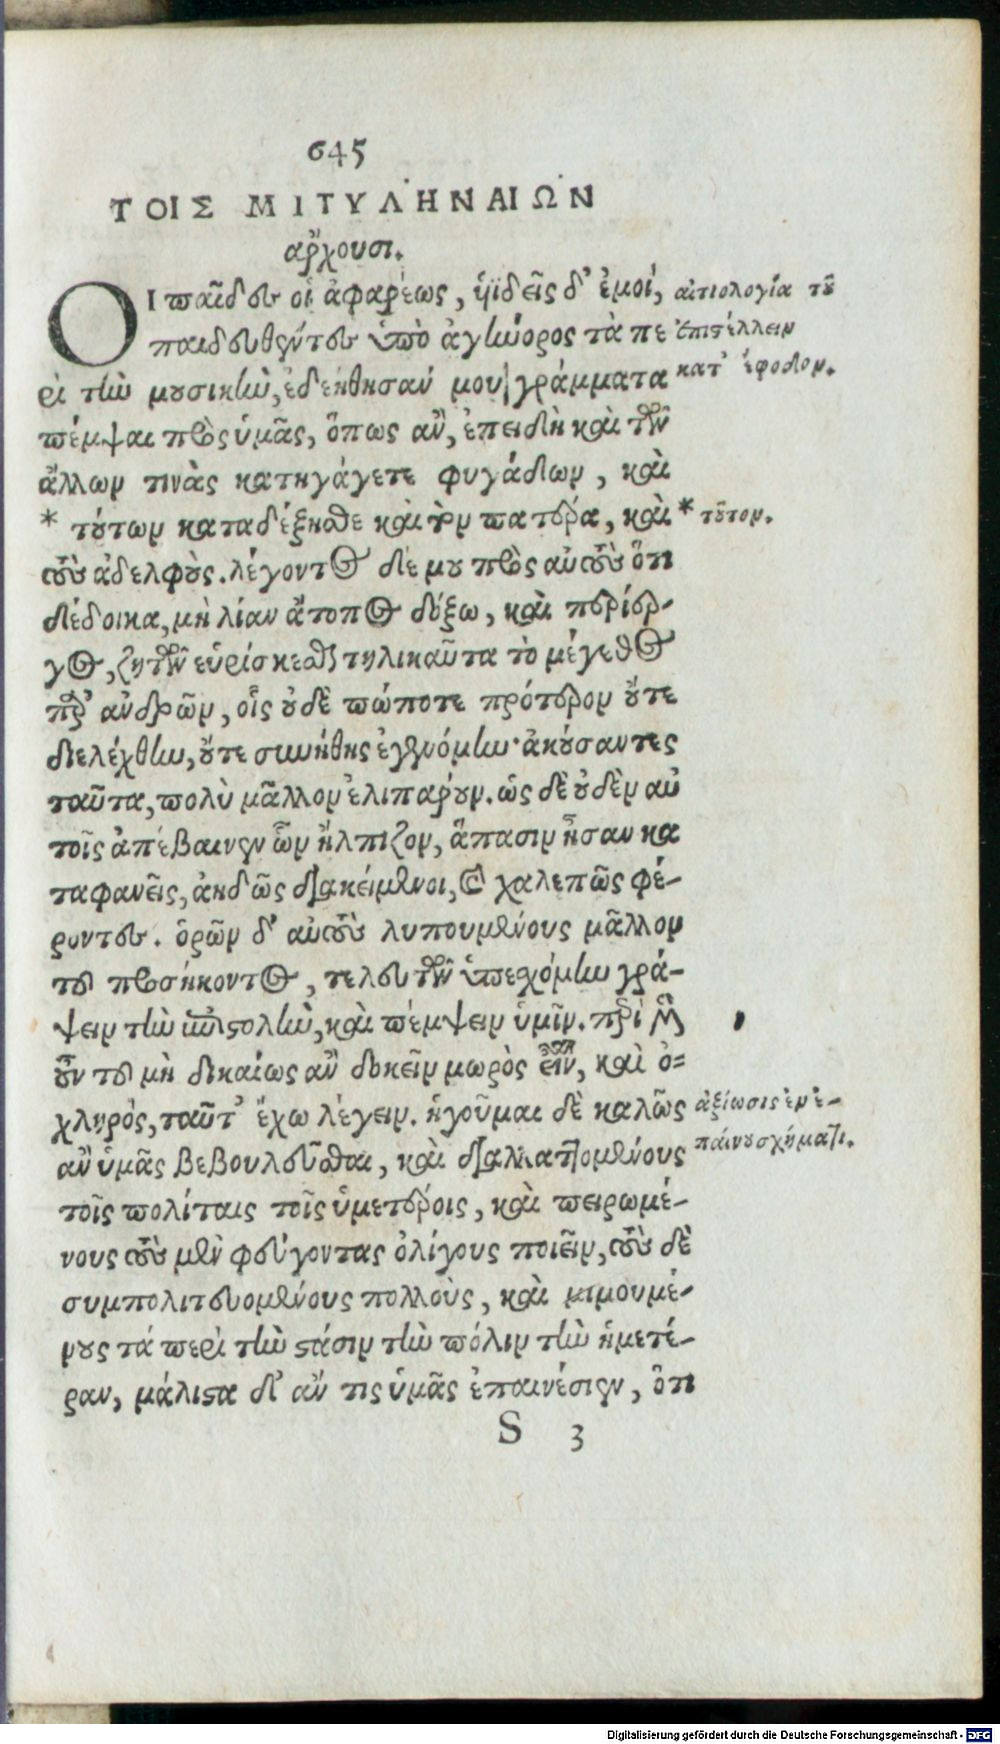 645
ΤΟΙΣ ΜΙΤΥΛΗΝΑΙΩΝ
ἄρχουσι.
ΟΙ παῖδες οἱ ἀφαρέως, ὑϊδεῖς δ' ἐμοί,
παιδευθέντες ὑπὸ ἀγήνορος τὰ πε
ρὶ τὴν μουσικὴν, ἐδεήθησάν μου γράμματα
πέμψαι πρὸς ὑμᾶς, ὅπως ἂν, ἐπειδὴ καὶ τῶν
ἄλλων τινὰς κατηγάγετε φυγάδων, καὶ
* τούτων καταδέξησθε καὶ τὸν πατέρα, καὶ
τοὺς ἀδελφούς. λέγοντος δέ μου πρὸς αὐτοὺς ὅτι
δέδοικα, μὴ λίαν ἄτοπος δόξω, καὶ περίερ-
γος, ζητῶν εὑρίσκεσθαι τηλικαῦτα τὸ μέγεθος
παρ' ἀνδρῶν, οἷς οὐδὲ πώποτε πρότερον οὔτε
διελέχθην, οὔτε συνήθης ἐγενόμην· ἀκούσαντες
ταῦτα, πολὺ μᾶλλον ἐλιπάρουν. ὡς δὲ οὐδὲν αὐ
τοῖς ἀπέβαινεν ὧν ἤλπιζον, ἅπασιν ἦσαν κα
ταφανεῖς, ἀηδῶς διακείμενοι, καὶ χαλεπῶς φέ-
ροντες. ὁρῶν δ' αὐτοὺς λυπουμένους μᾶλλον
τοῦ προσήκοντος, τελευτῶν ὑπεσχόμην γρά-
ψειν τὴν ἐπιστολὴν, καὶ πέμψειν ὑμῖν. περὶ μὲν
οὖν τοῦ μὴ δικαίως ἂν δοκεῖν μωρὸς εἶναι, καὶ ὀ=
χληρός, ταῦτ' ἔχω λέγειν. ἡγοῦμαι δὲ καλῶς
ἂν ὑμᾶς βεβουλεῦσθαι, καὶ διαλλαττομένους
τοῖς πολίταις τοῖς ὑμετέροις, καὶ πειρωμέ-
νους τοὺς μὲν φεύγοντας ὀλίγους ποιεῖν, τοὺς δὲ
συμπολιτευομένους πολλοὺς, καὶ μιμουμέ-
νους τά περὶ τὴν στάσιν τὴν πόλιν τὴν ἡμετέ-
ραν, μάλιστα δ' ἄν τις ὑμᾶς ἐπαινέσειεν, ὅτι
S 3
αἰτιολογία τοῦ
ἐπιστέλλειν
κατ' ἔφοδον.
* τοῦτον.
ἀξίωσις ἐν ἐ-
παίνου σχήματι.
Digitalisierung gefördert durch die Deutsche Forschungsgemeinschaft - DFG